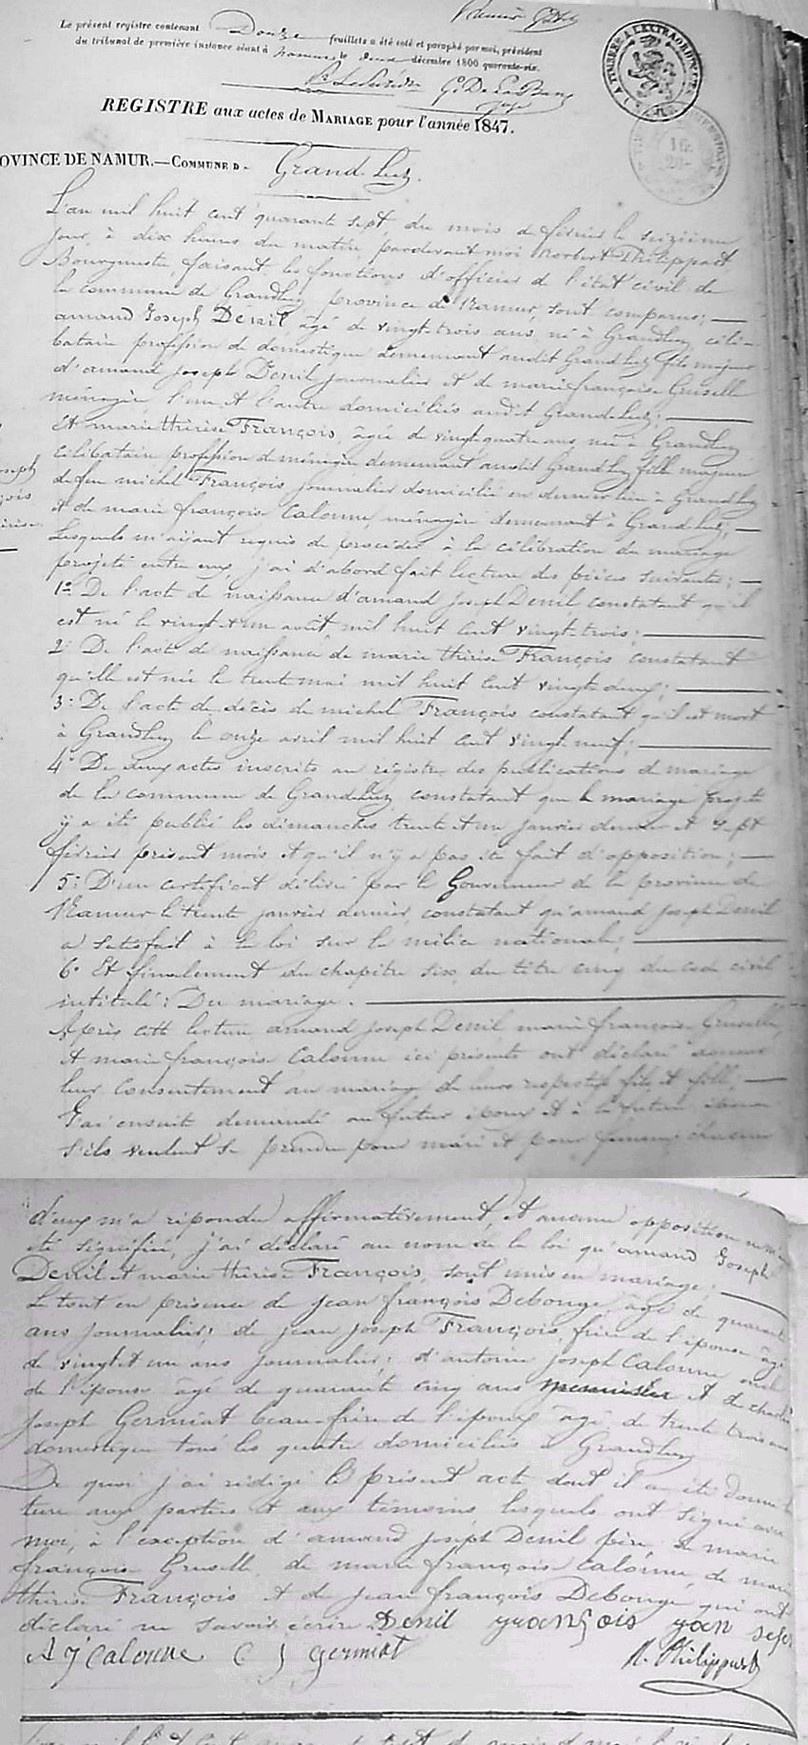 Le présent registre contenant Douze feuillets a été coté et paraphé par moi, président
du tribunal de première instance séant à Namur le deux décembre 1800 quarante-six.
REGISTRE aux actes de MARIAGE pour l'année 1847.
OVINCE DE NAMUR.—COMMUNE D. Grand-Leez.
L'an mil huit cent quarante sept, du mois de février le seizième
jour, à dix heures du matin pardevant moi Norbert Philippart
Bourgmestre, faisant les fonctions d'officier de l'état civil de
la commune de Grandleez province de Namur, sont comparus; —
amand Joseph Denil âgé de vingt-trois ans né à Grandleez céli-
bataire profession de domestique demeurant audit Grandleez fils majeur
d'amand Joseph Denil journalier et de marie françoise Gruselle
ménagère l'un et l'autre domiciliés audit Grandleez; —
Et marie thérèse François, âgée de vingt quatre ans née à Grandleez
célibataire profession de ménagère demeurant audit Grandleez fille majeure
de feu michel François journalier domicilié en dernier lieu à Grandleez
et de marie françoise Calonne, ménagère demeurant à Grandleez; —
Lesquels m'ayant requis de procéder à la célébration du mariage
projeté entre eux j'ai d'abord fait lecture des pièces suivantes; —
1° De l'acte de naissance d'amand Joseph Denil constatant qu'il
est né le vingt et un août mil huit cent vingt-trois; —
2° De l'acte de naissance de marie thérèse François constatant
qu'elle est née le trente mai mil huit cent vingt deux; —
3° De l'acte de décès de michel François constatant qu'il est mort
à Grandleez le onze avril mil huit cent vingt neuf; —
4° De deux actes inscrits au régistre des publications de mariage
de la commune de Grandleez constatant que le mariage projeté
y a été publié les dimanches trente et un janvier dernier et sept
février présent mois et qu'il n'y a pas été fait d'opposition; —
5° D'un certificat délivré par le Gouverneur de la province de
Namur le trente janvier dernier, constatant qu'amand Joseph Denil
a satisfait à la loi sur la milice nationale; —
6° Et finalement du chapitre six du titre cinq du code civil
intitulé: Du mariage. —
Après cette lecture amand Joseph Denil marie françoise Gruselle
et marie françoise Calonne ici présents ont déclaré donner
leur consentement au mariage de leurs respectifs fils et fille; —
J'ai ensuite demandé au futur époux et à la future épouse
s'ils veulent se prendre pour mari et pour femme; chacun
d'eux m'a répondu affirmativement, et aucune opposition
été signifiée, j'ai déclaré au nom de la loi qu'amand Joseph
Denil et marie thérèse François, sont unis en mariage; —
Le tout en présence de jean françois Debouge, âgé de quarante
ans journalier; de jean joseph François, frère de l'épouse âgé
de vingt et un ans journalier; d'antoine joseph Calonne oncle
de l'épouse âgé de quarante cinq ans menuisier et de charles
joseph Germiat beau-frère de l'époux âgé de trente trois ans
domestique tous les quatre domiciliés à Grandleez
De quoi j'ai rédigé le présent acte dont il a été donné lec-
ture aux parties et aux témoins lesquels ont signé avec
moi, à l'exception d'amand joseph Denil père, de marie
françoise Gruselle, de marie françoise Calonne, de marie
thérèse François et de jean françois Debouge qui ont
déclaré ne savoir écrire. Denil françois jan
A J Calonne C J germiat N. Philippart